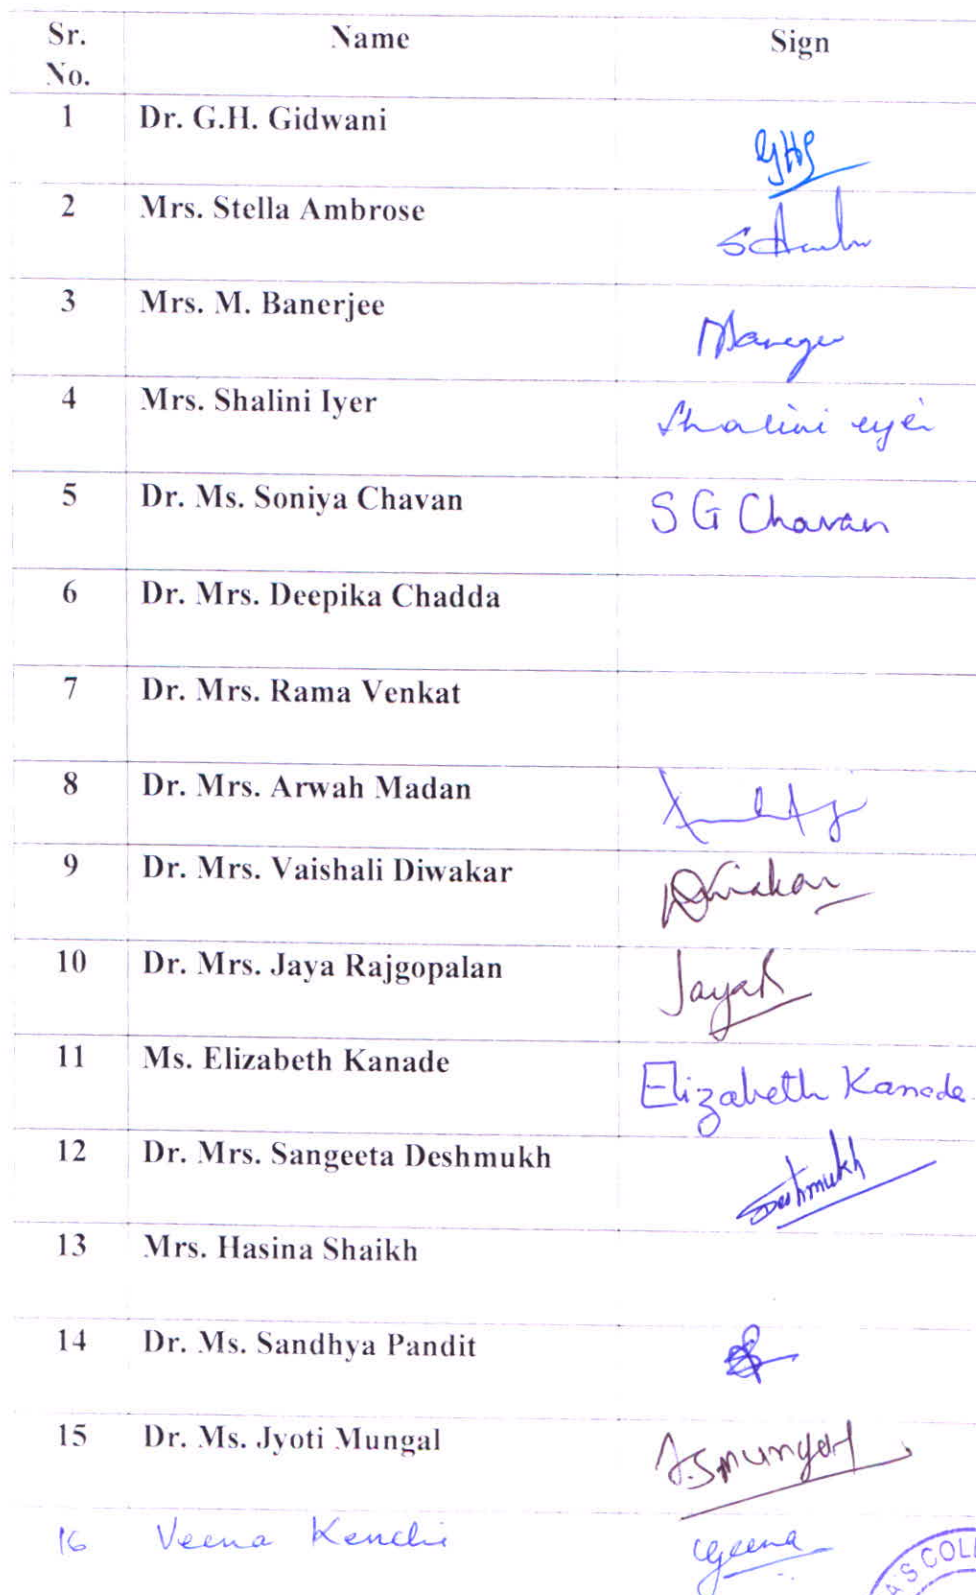 Sr. No. Name Sign
1 Dr. G.H. Gidwani GHG
2 Mrs. Stella Ambrose
3 Mrs. M. Banerjee
4 Mrs. Shalini Iyer Shalini
5 Dr. Ms. Soniya Chavan S G Chavan
6 Dr. Mrs. Deepika Chadda
7 Dr. Mrs. Rama Venkat
8 Dr. Mrs. Arwah Madan
9 Dr. Mrs. Vaishali Diwakar
10 Dr. Mrs. Jaya Rajgopalan JayaR
11 Ms. Elizabeth Kanade Elizabeth Kanade
12 Dr. Mrs. Sangeeta Deshmukh Deshmukh
13 Mrs. Hasina Shaikh
14 Dr. Ms. Sandhya Pandit
15 Dr. Ms. Jyoti Mungal J.S.Mungal
16 Veena Kenchi Veena